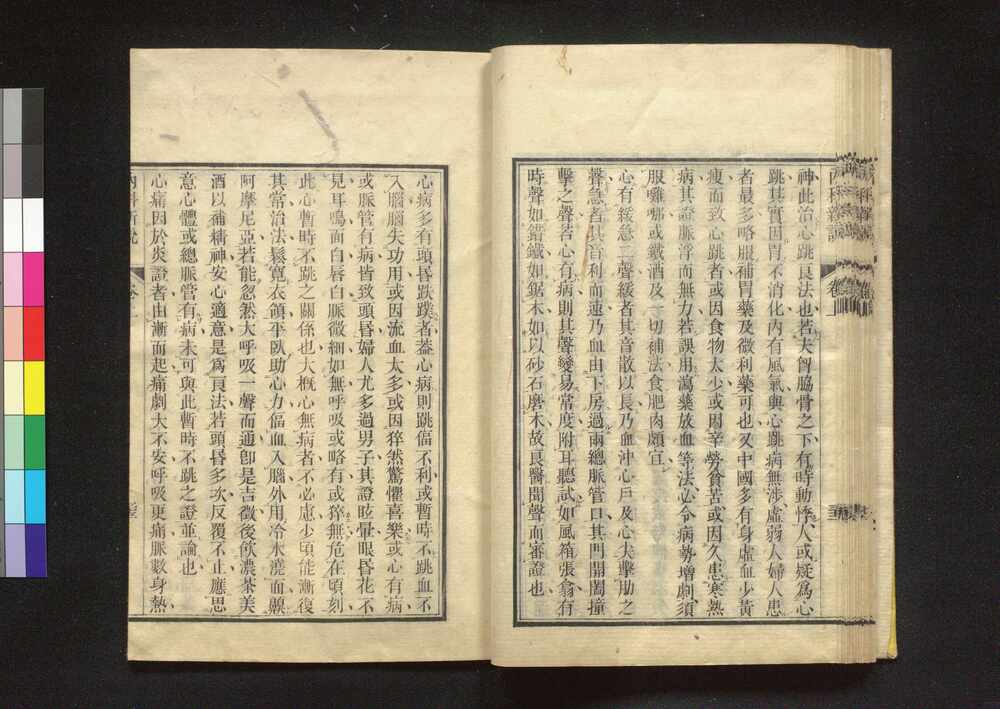 神此治心跳良法也若夫胷脇骨之下有時動悸人或疑爲心
跳其實因胃不消化內有風氣與心跳病無涉虛弱人婦人患
者最多略服補胃藥及微利藥可也又中國多有身虛血少黃
瘦而致心跳者或因食物太少或因辛勞貧苦或因久患寒熱
病其證脈浮而無力若誤用瀉藥放血等法必令病勢增劇須
服雞哪或鐵酒及一切補法食肥肉頗宜
心有緩急二聲緩者其音散以長乃血沖心戶及心尖擊肋之
聲急者其音利而速乃血由下房過兩總脈管口其門開闔撞
擊之聲若心有病則其聲變易常度附耳聽試如風箱張翕有
時聲如錯鐵如鋸木如以砂石磨木故良醫聞聲而審證也
心病多有頭昏跌蹼者蓋心病則跳偪不利或暫時不跳血不
入腦腦失功用或因流血太多或因猝然驚懼喜樂或心有病
或脈管有病皆致頭昏婦人尤多過男子其證眩暈眼昏花不
見耳鳴面白唇白脈微細如無呼吸或略有或猝無危在頃刻
此心暫時不跳之關係也大概心無病者不必慮少頃能漸復
其常治法鬆寬衣領平臥助心力偪血入腦外用冷水灑面嗅
阿摩尼亞若能忽然大呼吸一聲而通卽是吉徵後飮濃茶美
酒以補精神安心適意是爲良法若頭昏多次反覆不止應思
意心體或總脈管有病未可與此暫時不跳之證並論也
心痛因於炎證者由漸而起痛劇大不安呼吸更痛脈數身熱
內科新說